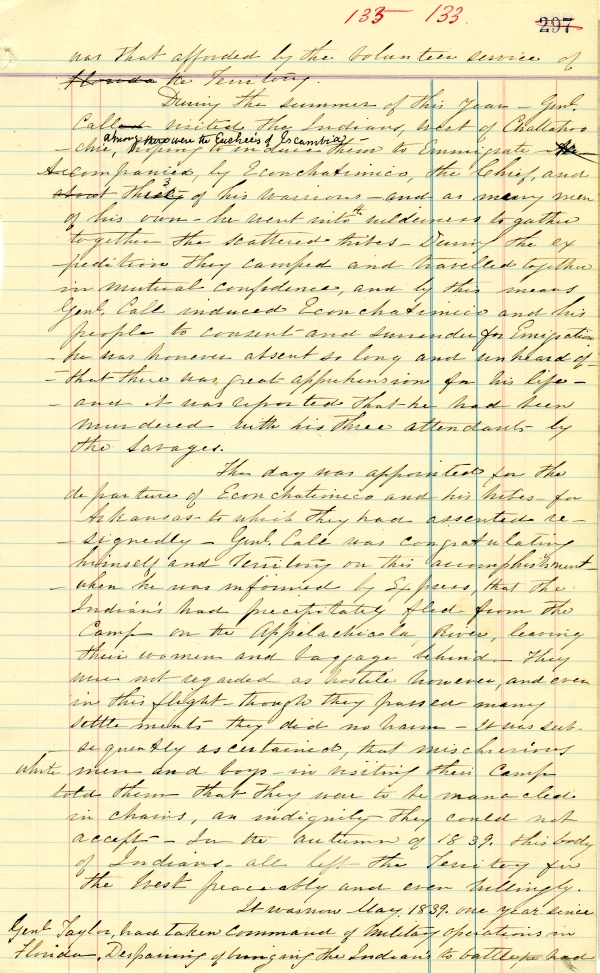 135 - 133
297
was that afforded by the volunteer service of
Florida the Territory.
During the summer of this Year - Genl.
Call visited the Indians, West of Chattahoo
among them were the Euchees of Escambia
-chie, hoping to induce them to Emmigrate
Accompanied, by Econchatimico, the Chief, and
about thirty 30 of his warriors - and as many men
of his own - he went into wilderness to gather
together the scattered tribes - During the ex
-pedition they camped and travelled together
in mutual confidence, and by this means
Genl. Call induced Econchatimico and his
people to consent and surrender for Emigration
- he was however absent so long and unheard of -
- that there was great apprehension for his life -
- and it was reported that he had been
murdered with his three attendants by
the Savages.
The day was appointed for the
departure of Econchatimico and his tribes for
Arkansas to which they had assented re-
-signedly - Genl. Call was congratulating
himself and Territory on this accomplishment -
- when he was informed by Express, that the
Indians had precipitately fled from the
Camp on the Appelachicola River, leaving
their women and baggage behind. They
were not regarded as hostile however, and even
in this flight - though they passed many
settlements they did no harm - It was sub-
sequently ascertained, that mischevious
white men and boys - in visiting their Camp
told them that they were to be manacled
in chains, an indignity they could not
accept - In the autumn of 1839. this body
of Indians - all left the Territory for
the West peaceably and even willingly.
It was now May. 1839. one year since
Genl. Taylor, had taken Command of Military operations in
Florida. Despairing of bringing the Indians to battle had